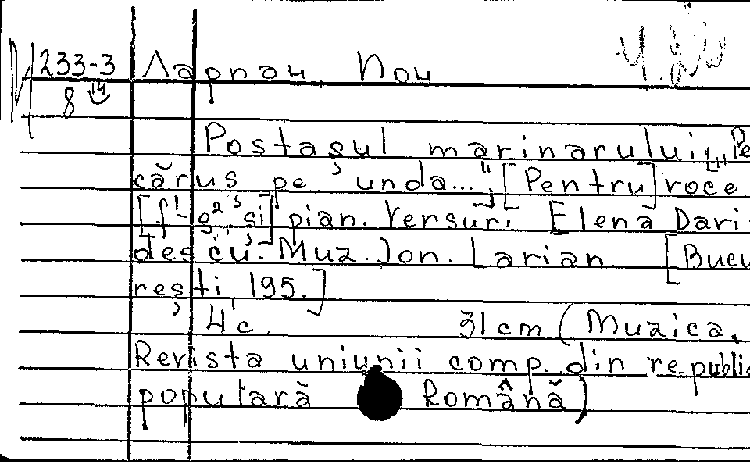 М 233-3 Лариан, Ион
8
Poștașul marinarului „Pe
cărăruș pe undă...", [Pentru] voce
[f¹-g² și] pian. Versuri Elena Dari-
descu. Muz. Ion. Larian [Bucu
rești, 195.]
4 c. 31 cm (Muzica.
Revista uniunii comp. din republic
populară Română)